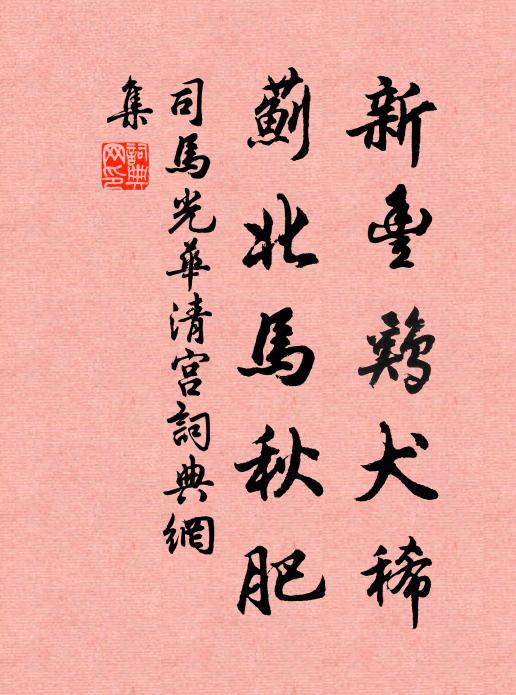 新豐鷄犬稀
薊北馬秋肥
司馬光華清宮詞典網
集
詞典網印